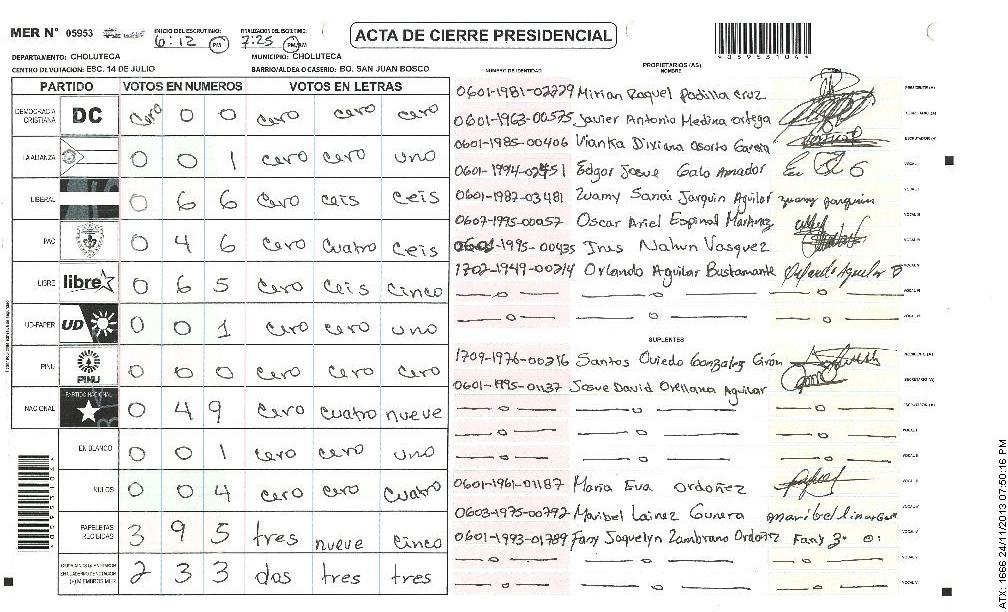 MER Nº 05953 INICIO DEL ESCRUTINIO: 6:12 PM FINALIZACION DEL ESCRUTINIO: 7:25 PM/AM
ACTA DE CIERRE PRESIDENCIAL
DEPARTAMENTO: CHOLUTECA MUNICIPIO: CHOLUTECA
CENTRO DE VOTACION: ESC. 14 DE JULIO BARRIO/ALDEA O CASERIO: BO. SAN JUAN BOSCO
PARTIDO VOTOS EN NUMEROS VOTOS EN LETRAS
DEMOCRACIA CRISTIANA DC Cero 0 0 cero cero cero
LA ALIANZA 0 0 1 cero cero uno
LIBERAL 0 6 6 cero ceis ceis
PAC 0 4 6 cero cuatro ceis
LIBRE libre 0 6 5 cero ceis cinco
UD-FAPER UD 0 0 1 cero cero uno
PINU PINU 0 0 0 cero cero cero
NACIONAL PARTIDO NACIONAL 0 4 9 cero cuatro nueve
EN BLANCO 0 0 1 cero cero uno
NULOS 0 0 4 cero cero cuatro
PAPELETAS RECIBIDAS 3 9 5 tres nueve cinco
(+) MIEMBROS MER 2 3 3 dos tres tres
NUMERO DE IDENTIDAD PROPIETARIOS (AS) NOMBRE
0601-1981-02229 Mirian Raquel Padilla Cruz PRESIDENTE (A)
0601-1963-00575 Javier Antonio Medina Ortega SECRETARIO (A)
0601-1985-00406 Vianka Dixiana Osorto Garcia ESCRUTADOR (A)
0601-1994-02451 Edgar Josue Galo Amador VOCAL I
0601-1987-03481 Zuamy Sanai Jarquin Aguilar zuamy jarquin VOCAL II
0607-1995-00057 Oscar Ariel Espinal Martinez VOCAL III
0601-1995-00435 Ines Nahun Vasquez VOCAL IV
1702-1949-00214 Orlando Aguilar Bustamante Orlando Aguilar B VOCAL V
VOCAL VI
VOCAL VII
SUPLENTES
1709-1976-00216 Santos Oviedo Gonzales Girón PRESIDENTE (A)
0601-1995-01137 Josue David Orellana Aguilar SECRETARIO (A)
ESCRUTADOR (A)
VOCAL I
VOCAL II
0601-1961-01187 Maria Eva Ordoñez VOCAL III
0603-1975-00792 Maribel Lainez Gunera VOCAL IV
0601-1993-01789 Fany Jaquelyn Zambrano Ordoñez Fany Z. O. VOCAL V
VOCAL VI
VOCAL VII
ATX: 1666 24/11/2013 07:50:16 PM